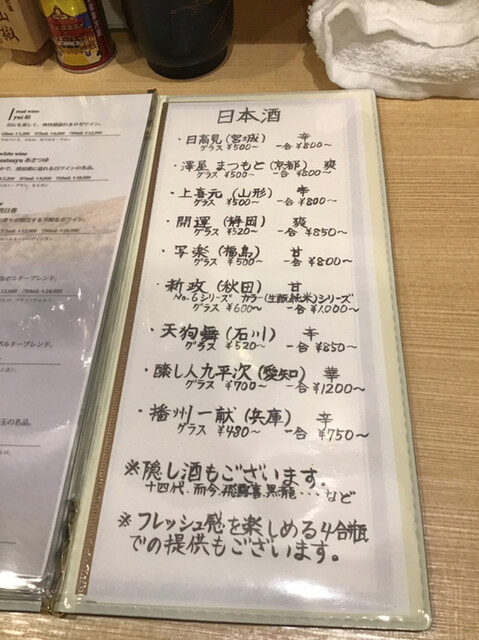 日本酒
・日高見(宮城) 辛
グラス ¥500~ 一合 ¥800~
・澤屋 まつもと(京都) 爽
グラス ¥500~ 一合 ¥800~
・上喜元(山形) 辛
グラス ¥500~ 一合 ¥800~
・開運(静岡) 爽
グラス ¥520~ 一合 ¥850~
・写楽(福島) 甘
グラス ¥500~ 一合 ¥800~
・新政(秋田) 甘
No.6シリーズ カラー(生酛純米)シリーズ
グラス ¥600~ 一合 ¥1,000~
・天狗舞(石川) 辛
グラス ¥520~ 一合 ¥850~
・醸し人九平次(愛知) 華
グラス ¥700~ 一合 ¥1200~
・播州一献(兵庫) 辛
グラス ¥480~ 一合 ¥750~
※隠し酒もございます。
十四代、而今、飛露喜、黒龍・・・など
※フレッシュ感を楽しめる4合瓶
での提供もございます。
rosé wine
yui 結
white wine
ボルドーブレンド。
玉の名品。
山椒